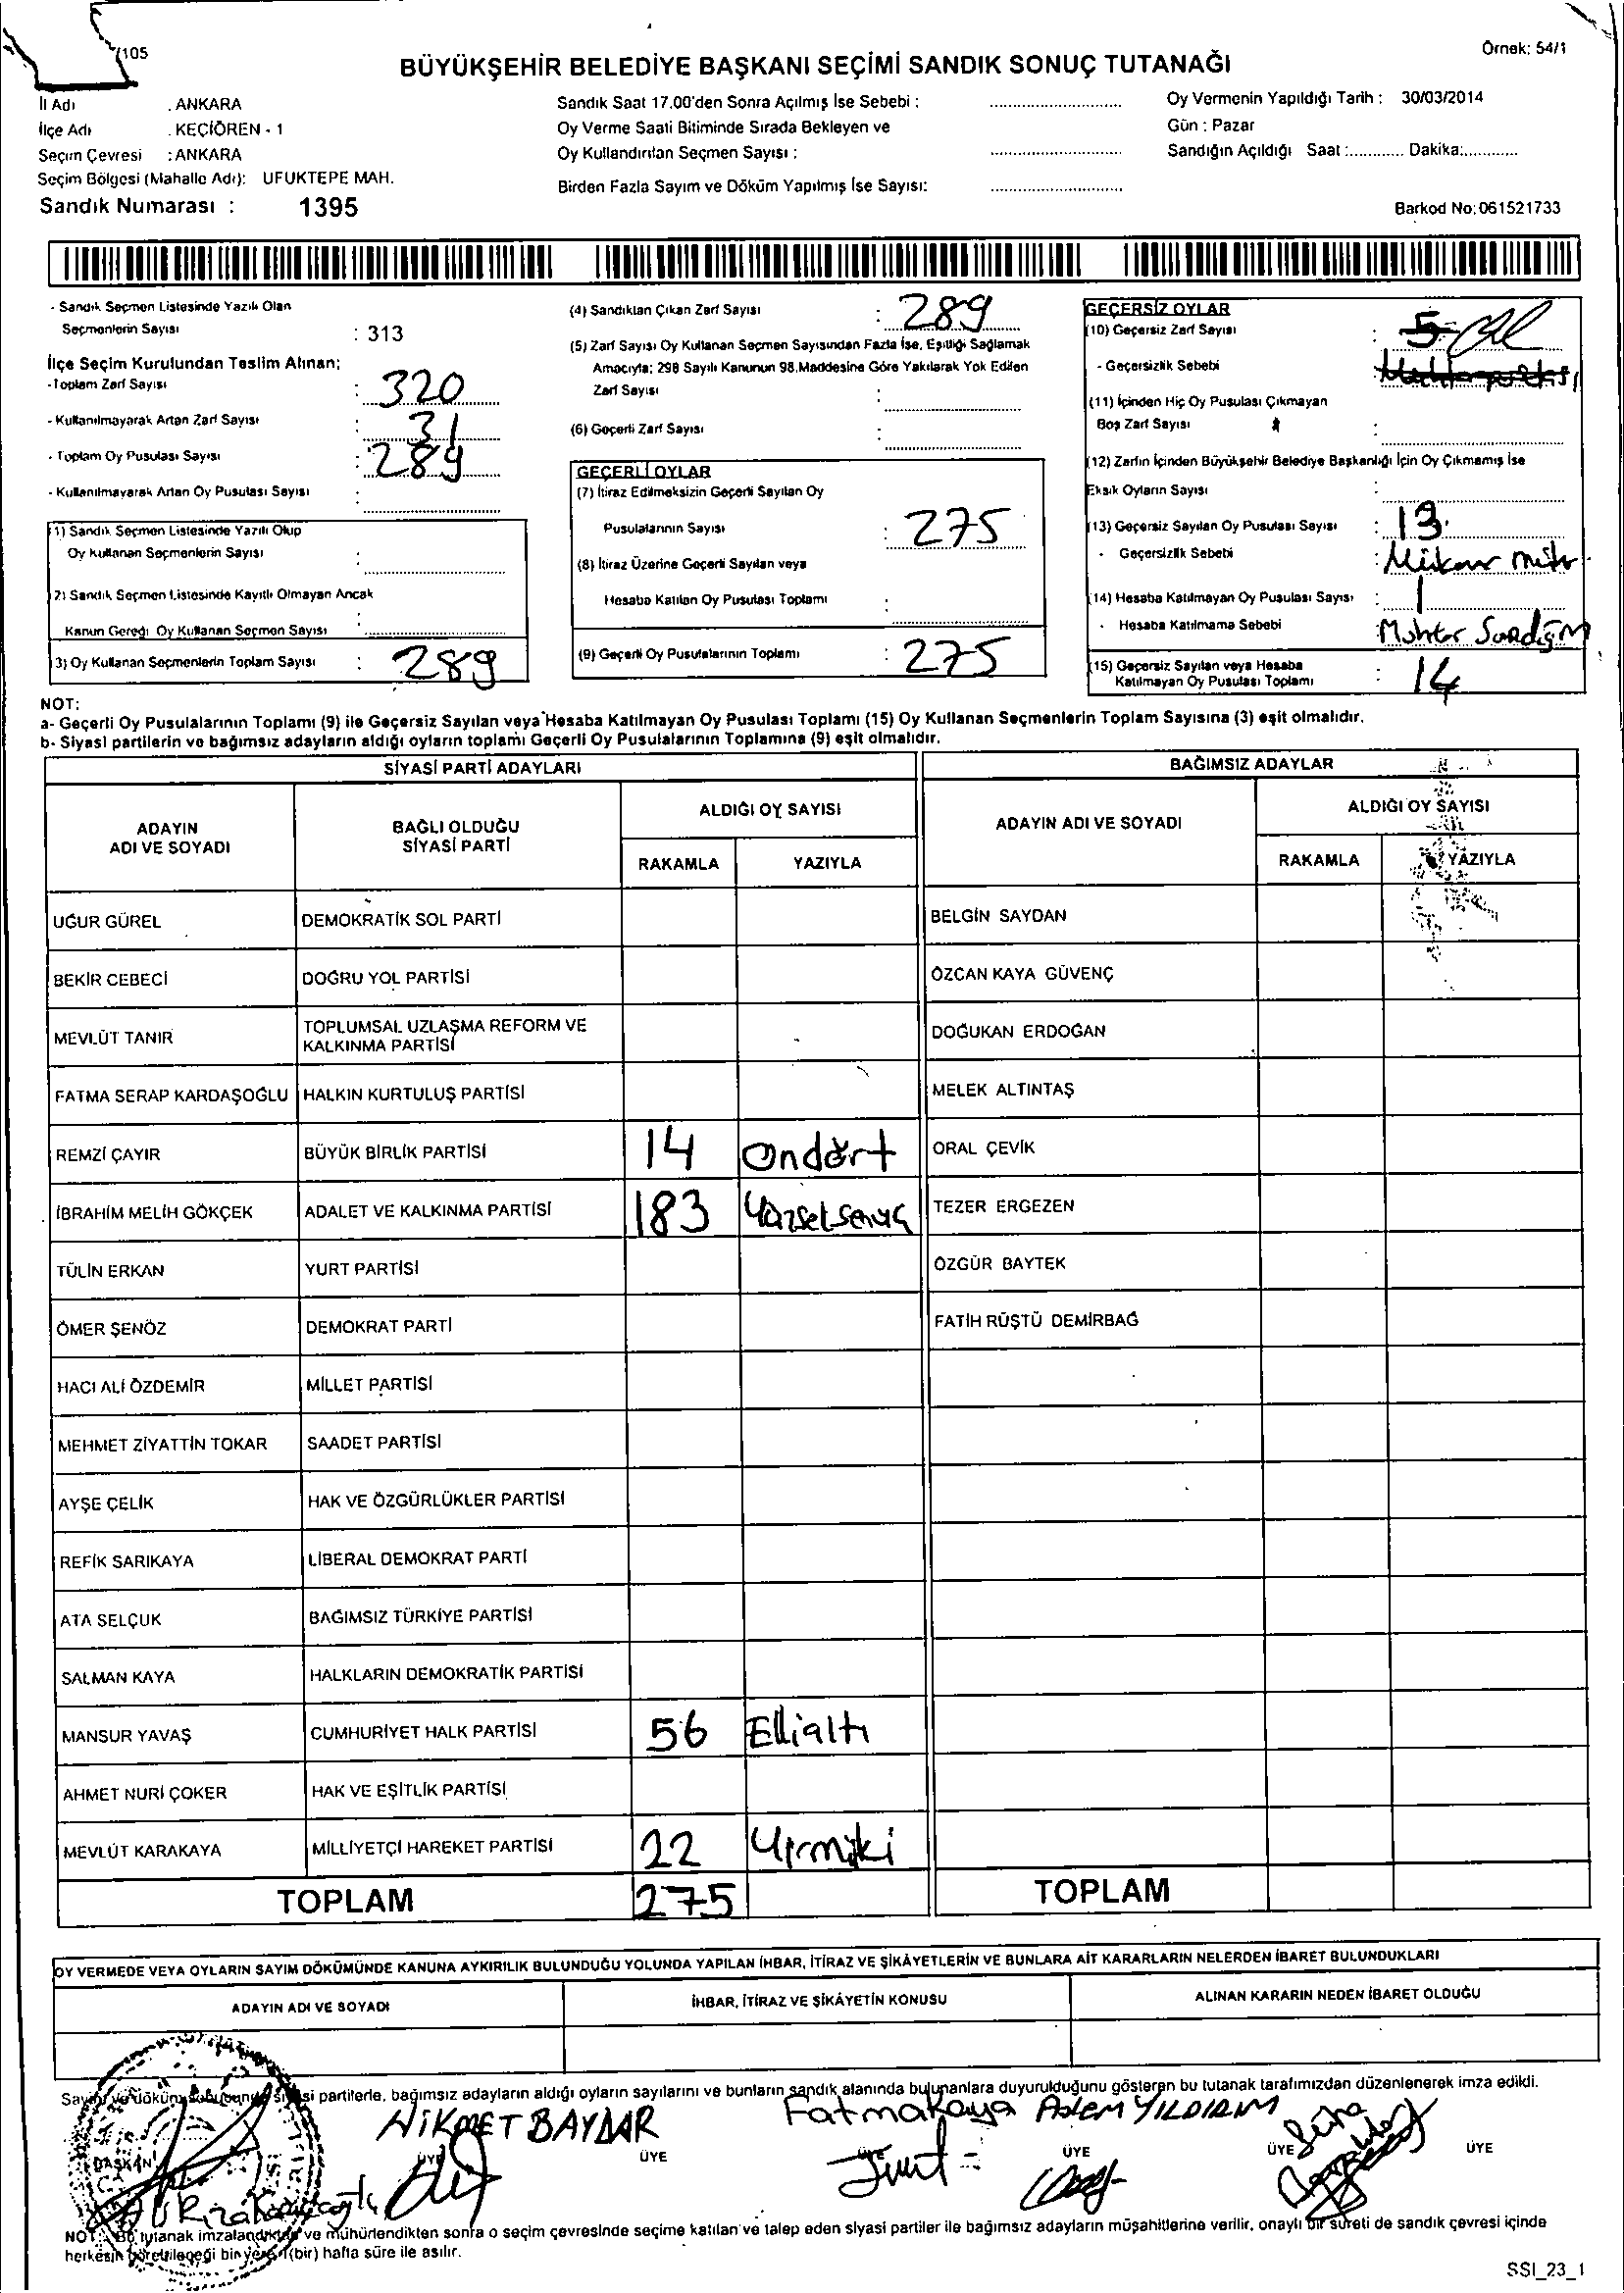 /105
Örnek: 54/1
BÜYÜKŞEHİR BELEDİYE BAŞKANI SEÇİMİ SANDIK SONUÇ TUTANAĞI
İl Adı : ANKARA
İlçe Adı : KEÇİÖREN - 1
Seçim Çevresi : ANKARA
Seçim Bölgesi (Mahalle Adı): UFUKTEPE MAH.
Sandık Numarası : 1395
Sandık Saat 17.00'den Sonra Açılmış İse Sebebi :
Oy Verme Saati Bitiminde Sırada Bekleyen ve
Oy Kullandırılan Seçmen Sayısı :
Birden Fazla Sayım ve Döküm Yapılmış İse Sayısı:
Oy Vermenin Yapıldığı Tarih : 30/03/2014
Gün : Pazar
Sandığın Açıldığı Saat :............ Dakika:............
Barkod No:061521733
- Sandık Seçmen Listesinde Yazılı Olan
Seçmenlerin Sayısı : 313
İlçe Seçim Kurulundan Teslim Alınan;
- Toplam Zarf Sayısı : 320
- Kullanılmayarak Artan Zarf Sayısı : 31
- Toplam Oy Pusulası Sayısı : 289
- Kullanılmayarak Artan Oy Pusulası Sayısı :
(1) Sandık Seçmen Listesinde Yazılı Olup
Oy Kullanan Seçmenlerin Sayısı :
(2) Sandık Seçmen Listesinde Kayıtlı Olmayan Ancak
Kanun Gereği Oy Kullanan Seçmen Sayısı :
(3) Oy Kullanan Seçmenlerin Toplam Sayısı : 289
(4) Sandıktan Çıkan Zarf Sayısı : 289
(5) Zarf Sayısı Oy Kullanan Seçmen Sayısından Fazla İse, Eşitliği Sağlamak
Amacıyla; 298 Sayılı Kanunun 98.Maddesine Göre Yakılarak Yok Edilen
Zarf Sayısı :
(6) Geçerli Zarf Sayısı :
GEÇERLİ OYLAR
(7) İtiraz Edilmeksizin Geçerli Sayılan Oy
Pusulalarının Sayısı : 275
(8) İtiraz Üzerine Geçerli Sayılan veya
Hesaba Katılan Oy Pusulası Toplamı :
(9) Geçerli Oy Pusulalarının Toplamı : 275
GEÇERSİZ OYLAR
(10) Geçersiz Zarf Sayısı : 5
- Geçersizlik Sebebi :
(11) İçinden Hiç Oy Pusulası Çıkmayan
Boş Zarf Sayısı :
(12) Zarfın İçinden Büyükşehir Belediye Başkanlığı İçin Oy Çıkmamış İse
Eksik Oyların Sayısı :
(13) Geçersiz Sayılan Oy Pusulası Sayısı : 13
- Geçersizlik Sebebi :
(14) Hesaba Katılmayan Oy Pusulası Sayısı : 1
- Hesaba Katılmama Sebebi :
(15) Geçersiz Sayılan veya Hesaba
Katılmayan Oy Pusulası Toplamı : 14
NOT:
a- Geçerli Oy Pusulalarının Toplamı (9) ile Geçersiz Sayılan veya Hesaba Katılmayan Oy Pusulası Toplamı (15) Oy Kullanan Seçmenlerin Toplam Sayısına (3) eşit olmalıdır.
b- Siyasi partilerin ve bağımsız adayların aldığı oyların toplamı Geçerli Oy Pusulalarının Toplamına (9) eşit olmalıdır.
SİYASİ PARTİ ADAYLARI
BAĞIMSIZ ADAYLAR
ADAYIN ADI VE SOYADI
BAĞLI OLDUĞU SİYASİ PARTİ
ALDIĞI OY SAYISI
RAKAMLA YAZIYLA
ADAYIN ADI VE SOYADI
ALDIĞI OY SAYISI
RAKAMLA YAZIYLA
UĞUR GÜREL DEMOKRATİK SOL PARTİ BELGİN SAYDAN
BEKİR CEBECİ DOĞRU YOL PARTİSİ ÖZCAN KAYA GÜVENÇ
MEVLÜT TANIR TOPLUMSAL UZLAŞMA REFORM VE KALKINMA PARTİSİ DOĞUKAN ERDOĞAN
FATMA SERAP KARDAŞOĞLU HALKIN KURTULUŞ PARTİSİ MELEK ALTINTAŞ
REMZİ ÇAYIR BÜYÜK BİRLİK PARTİSİ 14 Ondört ORAL ÇEVİK
İBRAHİM MELİH GÖKÇEK ADALET VE KALKINMA PARTİSİ 183 TEZER ERGEZEN
TÜLİN ERKAN YURT PARTİSİ ÖZGÜR BAYTEK
ÖMER ŞENÖZ DEMOKRAT PARTİ FATİH RÜŞTÜ DEMİRBAĞ
HACI ALİ ÖZDEMİR MİLLET PARTİSİ
MEHMET ZİYATTİN TOKAR SAADET PARTİSİ
AYŞE ÇELİK HAK VE ÖZGÜRLÜKLER PARTİSİ
REFİK SARIKAYA LİBERAL DEMOKRAT PARTİ
ATA SELÇUK BAĞIMSIZ TÜRKİYE PARTİSİ
SALMAN KAYA HALKLARIN DEMOKRATİK PARTİSİ
MANSUR YAVAŞ CUMHURİYET HALK PARTİSİ 56 Ellialtı
AHMET NURİ ÇOKER HAK VE EŞİTLİK PARTİSİ
MEVLÜT KARAKAYA MİLLİYETÇİ HAREKET PARTİSİ 22 Yirmiki
TOPLAM 275 TOPLAM
OY VERMEDE VEYA OYLARIN SAYIM DÖKÜMÜNDE KANUNA AYKIRILIK BULUNDUĞU YOLUNDA YAPILAN İHBAR, İTİRAZ VE ŞİKÂYETLERİN VE BUNLARA AİT KARARLARIN NELERDEN İBARET BULUNDUKLARI
ADAYIN ADI VE SOYADI İHBAR, İTİRAZ VE ŞİKÂYETİN KONUSU ALINAN KARARIN NEDEN İBARET OLDUĞU
Sayım ve döküm sonucunda siyasi partilerle, bağımsız adayların aldığı oyların sayılarını ve bunların sandık alanında bulunanlara duyurulduğunu gösteren bu tutanak tarafımızdan düzenlenerek imza edildi.
NİKMET BAYDAR Fatmakaya Adem YILDIRIM
BAŞKAN ÜYE ÜYE ÜYE ÜYE ÜYE ÜYE
NOT : Bu tutanak imzalandıktan ve mühürlendikten sonra o seçim çevresinde seçime katılan ve talep eden siyasi partiler ile bağımsız adayların müşahitlerine verilir, onaylı bir sureti de sandık çevresi içinde
herkesin görebileceği bir yere 1 (bir) hafta süre ile asılır.
SSI_23_1